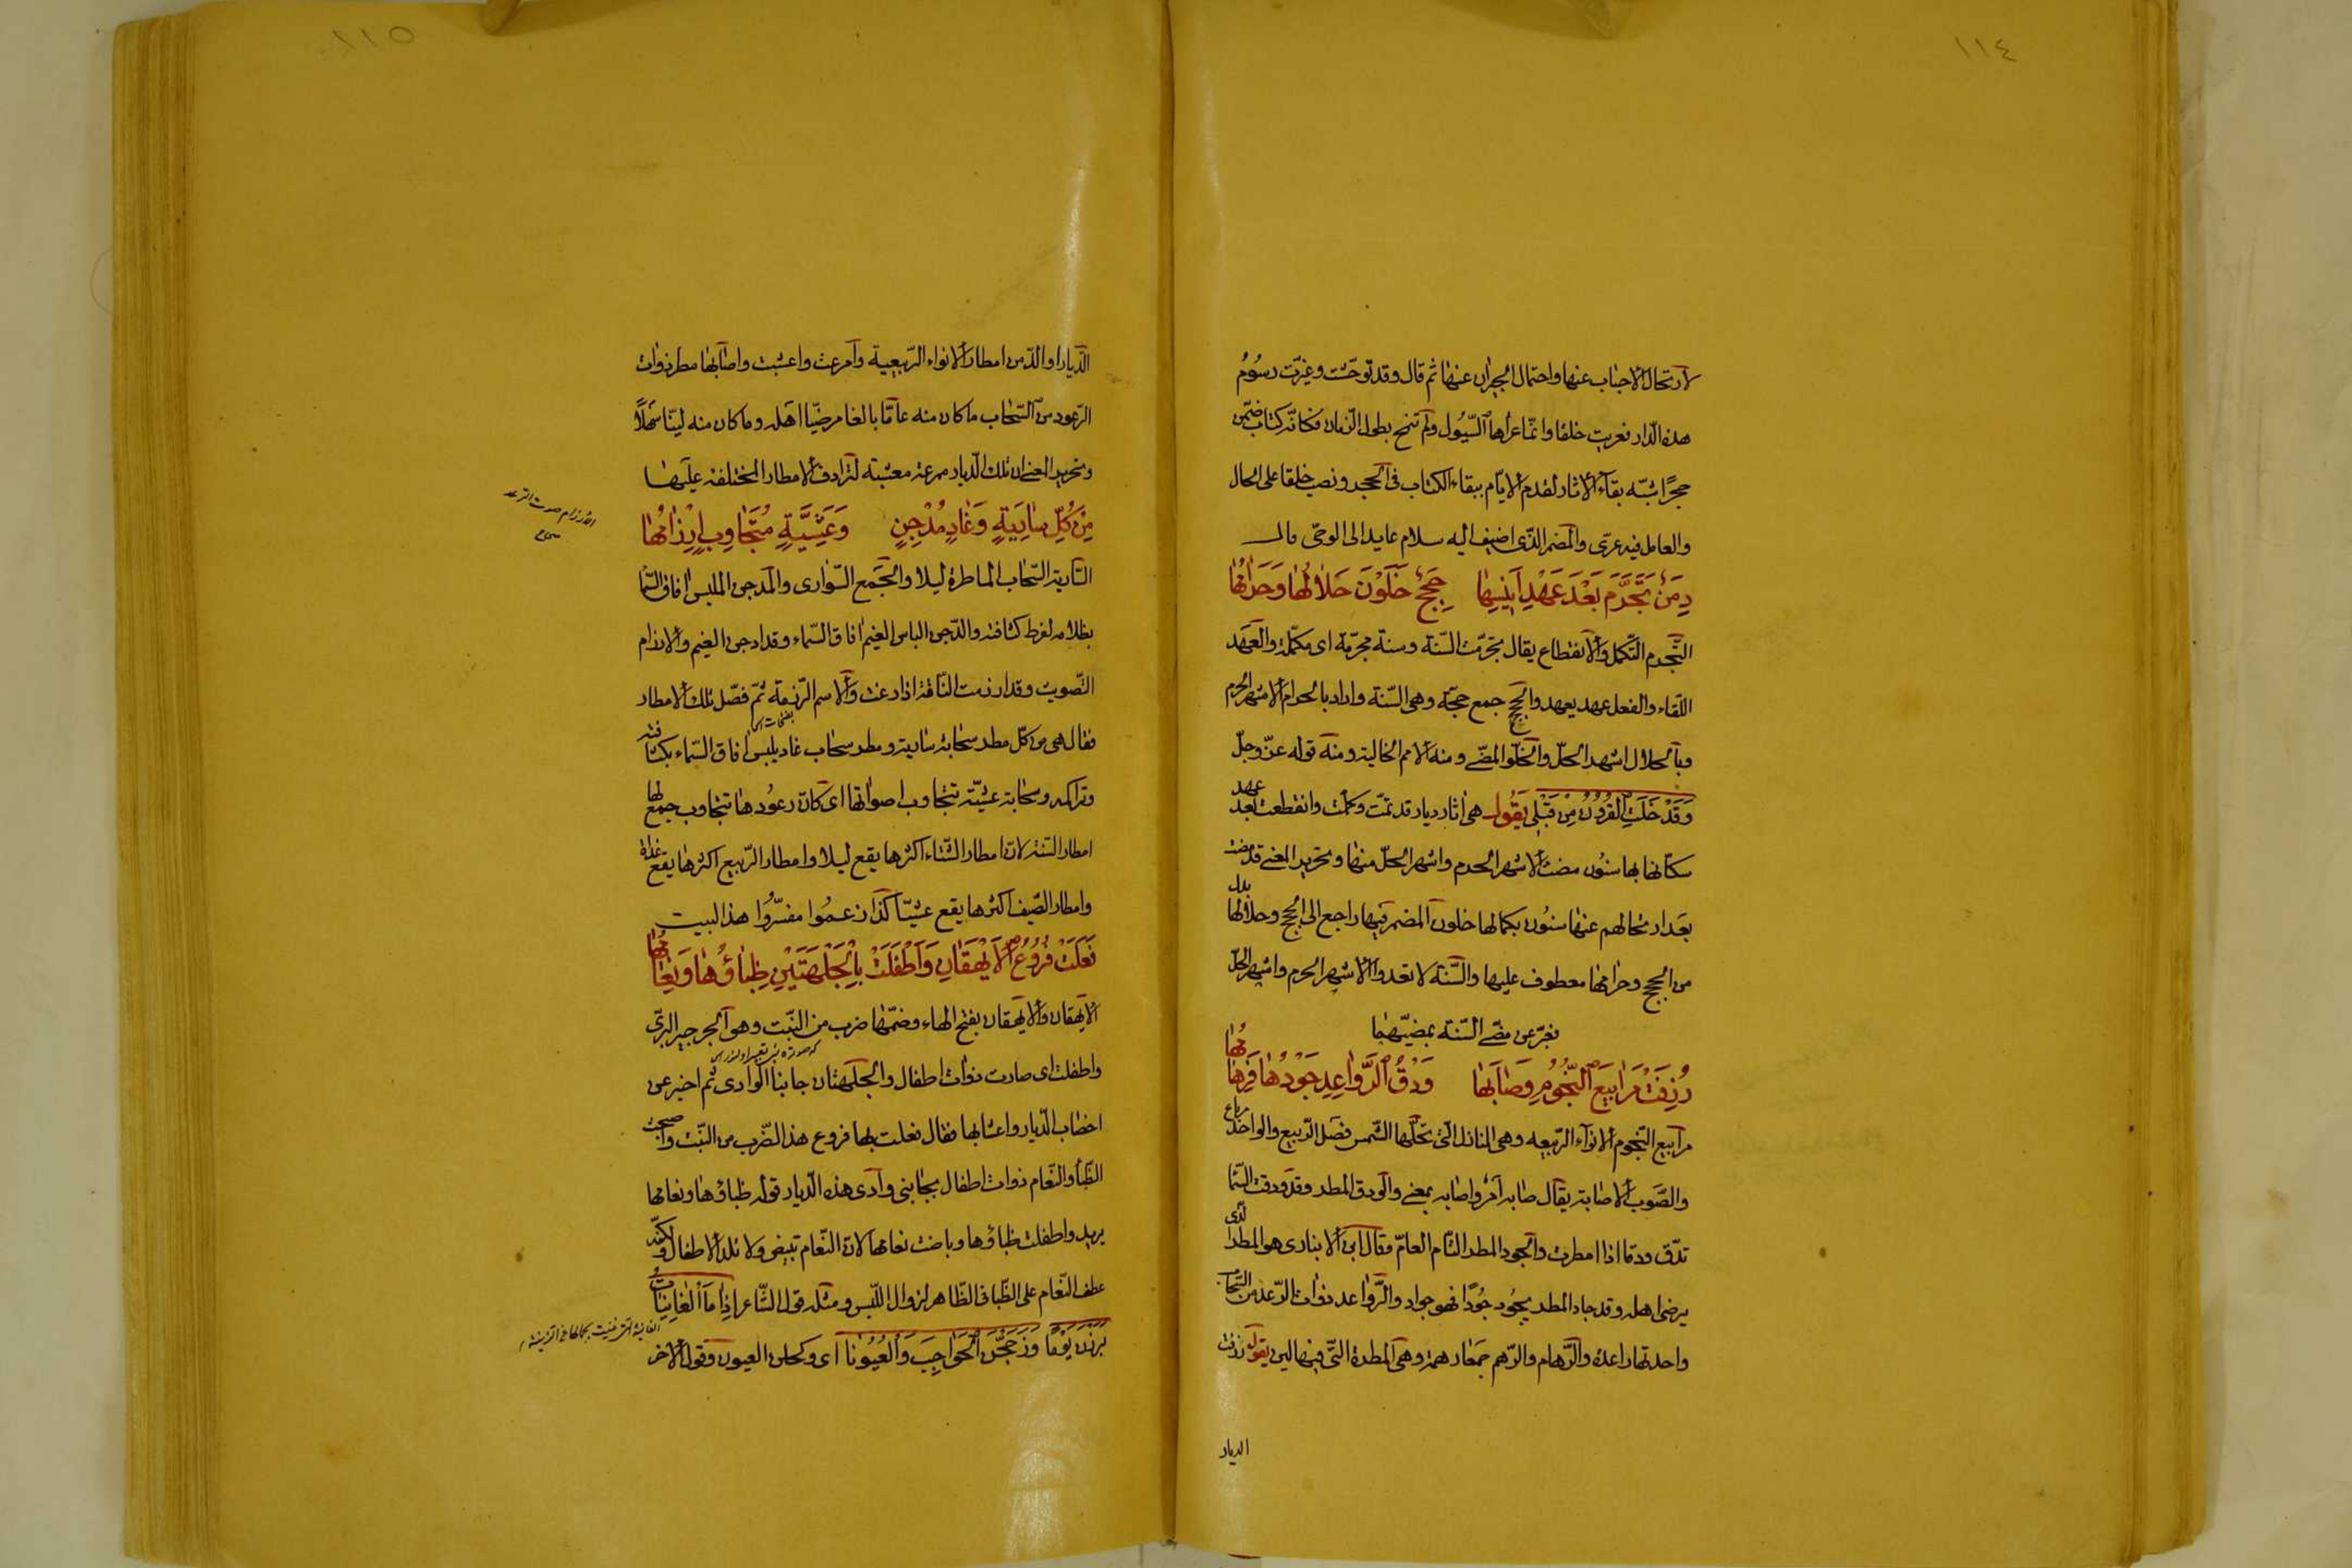 ١١٤
لارتحال الاحباب عنها واحتمال الجيران عنها ثم قال وقد توحّشت وغيّرت رسُومُ
هذه الدّار فعريت خلقا وانّما عرّاها السّيُول ولم تنمح بطول الزّمان فكانّه كتاب ضمّن
حجرًا شبّه بقآء الاثار لقدم الايّام ببقاء الكتاب فى الحجر ونصب خلقا على الحال
والعامل فيه عرّى والمضمر الذّى اضيف اليه سلام عايد الى الوحى قال
دِمَنٌ تَجَرَّمَ بَعْدَ عَهْدِ اَنِيسِهَا حِجَجٌ خَلَوْنَ حَلَالُهَا وَحَرَامُهَا
التّجرم التّكمل والانقطاع يقال تجرّمت السّنة وسنة مجرّمة اى مكمّلة والعهد
اللّقاء والفعل عهد يعهد والحجج جمع حجّة وهى السّنة واراد بالحرام الاشهر الحرم
وبالحلال اشهر الحلّ والخلوّ المضّى ومنه الامم الخالية ومنه قوله عزّ وجلّ
وَقَدْ خَلَتِ الْقُرُونُ مِنْ قَبْلِى يَقُول هى اثار ديار قد تمّت وكملت وانقطعت بعد عهد
سكّانها بها سنُون مضت الاشهر الحرم واشهر الحلّ منها وتحرير المعنى قد مضت
بعد ارتحالهم عنها سنُون بكمالها خلون المضمر فيها راجع الى الحجج وحلالها بدل
من الحجج وحرامها معطوف عليها والسّنة لا تعدوا الاشهر الحرم واشهر الحلّ
فعبّر عن مضّى السّنة بمضيّهما
رُزِقَتْ مَرَابِيعَ النُّجُومِ وَصَابَهَا وَدْقُ الرَّوَاعِدِ جَوْدُهَا فَرِهَامُهَا
مرآبيع النّجوم الانوآء الرّبيعه وهى المنازل الّتى تحلّها الشّمس فصل الرّبيع والواحد مرباع
والصَّوب الاصابة يقال صابه امر واصابه بمعنى والودق المطر وقد ودقت السّما
تدّق ودقا اذا امطرت والجود المطر التّام العامّ وقال ابن الانبارى هو المطر الّذى
يرضى اهله وقد جاد المطر يجُود جُودًا فهو جواد والرّواعد ذوات الرّعد من السّحاب
واحدتها راعدة والرّهام والرّهم جمعا رهمة وهى المطرة الّتى فيها لين يقول رزقت
الديار
١١٥
الدّيار او الدّمن امطار الانواء الرّبيعية وامرعت واعشبت واصابها مطر ذوات
الرّعود من السّحاب ما كان منه عامّا بالغا مرضيّا اهله وما كان منه ليّنا سَهلًا
وتحرير المعنى ان تلك الدّيار ممرعة معشبة لترادف الامطار المختلفة عليها
مِنْ كُلِّ سَارِيَةٍ وَغَادٍ مُدْجِنٍ وَعَشِيَّةٍ مُتَجَاوِبٍ اِرْزَامُهَا
الارزام صوت الرّعد
السّارية السّحاب الماطرة ليلا والجَمع السّوارى والمدجن الملبس افاق السّما
بظلامه لفرط كثافته والدّجن الباس الغيم افاق السّماء وقد ادجن الغيم والارزام
التّصويت وقد ارزمت النّاقة اذا رغت والاسم الرّزمة ثمّ فصّل تلك الامطار
فقال هى من كلّ مطر سحابة سارية ومطر سحاب غاد يلبس افاق السّماء بكثافته
وتراكمه وسحابة عشيّة تتجاوب اصواتها اى كانّ رعُودها تتجاوب جمع لها
امطار السّنة لانّ امطار الشّتاء اكثرها يقع ليلا وامطار الرّبيع اكثرها يقع غداة
وامطار الصّيف اكثرها يقع عشيّا كذا زعمُوا مفسّرُوا هذا البيت
فَعَلَتْ فُرُوعُ الْاَيْهَقَانِ وَاَطْفَلَتْ بِالْجَلْهَتَيْنِ ظِبَاؤُهَا وَنِعَامُهَا
الايهقان والايهقان بفتح الهاء وضمّها ضرب من النّبت وهو الجرجير البرّى
واطفلت اى صارت ذوات اطفال والجلهتان جانبا الوادى ثم اخبر عن
اخصاب الدّيار واعشابها فقال فعلت بها فروع هذا الضّرب من النّبت واصبحت
الظّبا والنّعام ذوات اطفال بجانبى وادى هذه الدّيار قوله ظباؤها ونعامها
يريد واطفلت ظباؤها وباضت نعامها لانّ النّعام تبيض ولا تلد الاطفال ولكنّه
عطف النّعام على الظّبا فى الظّاهر لزوال اللّبس ومثله قول الشّاعر اِذَا مَا الْغَانِيَاتُ
بَرَزْنَ يَوْمًا وَزَجَّجْنَ الْحَوَاجِبَ وَالْعُيُوْنَا اى وكحلن العيون وقول الاخر
الغانية الّتى غنيت بجمالها عن الزّينة